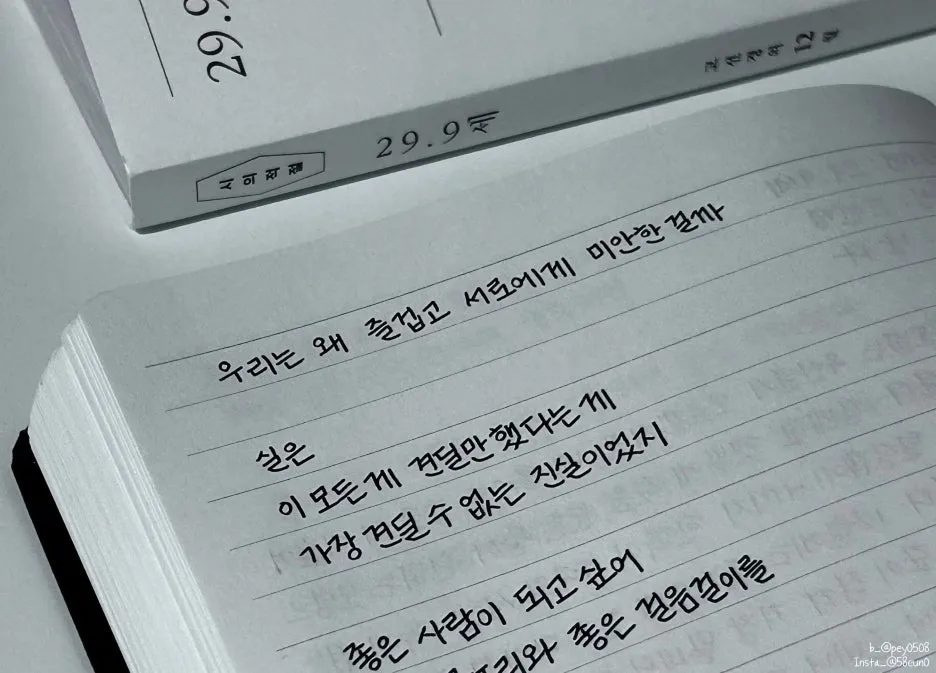 29.9
29.9세
시인의 12월
우리는 왜 즐겁고 서로에게 미안한걸까
실은
이 모든게 견딜만했다는게
가장 견딜 수 없는 진실이었지
좋은 사람이 되고 싶어
좋은 걸음걸이를
b_@pey0508
Insta_@58eun0